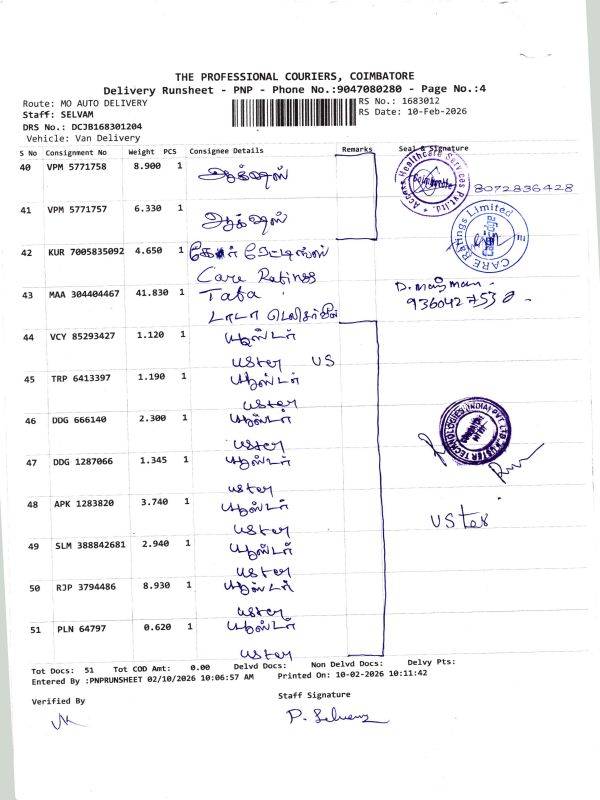 THE PROFESSIONAL COURIERS, COIMBATORE
Delivery Runsheet - PNP - Phone No.:9047080280 - Page No.:4
Route: MO AUTO DELIVERY RS No.: 1683012
Staff: SELVAM RS Date: 10-Feb-2026
DRS No.: DCJB168301204
Vehicle: Van Delivery
S No Consignment No Weight PCS Consignee Details Remarks Seal & Signature
40 VPM 5771758 8.900 1
Access Healthcare Services Pvt.Ltd. Coimbatore
8072836428
41 VPM 5771757 6.330 1
CARE Ratings Limited
42 KUR 7005835092 4.650 1 கேர் ரேட்டிங்ஸ்
Care Ratings
43 MAA 304404467 41.830 1 Tata
டாடா
44 VCY 85293427 1.120 1 யூஸ்டர்
uster US
45 TRP 6413397 1.190 1 யூஸ்டர்
uster
46 DDG 666140 2.300 1 யூஸ்டர்
uster
USTER TECHNOLOGIES (INDIA) PVT. LTD
47 DDG 1287066 1.345 1 யூஸ்டர்
uster
48 APK 1283820 3.740 1 யூஸ்டர்
uster
uster
49 SLM 388842681 2.940 1 யூஸ்டர்
uster
50 RJP 3794486 8.930 1 யூஸ்டர்
uster
51 PLN 64797 0.620 1 யூஸ்டர்
uster
Tot Docs: 51 Tot COD Amt: 0.00 Delvd Docs: Non Delvd Docs: Delvy Pts:
Entered By :PNPRUNSHEET 02/10/2026 10:06:57 AM Printed On: 10-02-2026 10:11:42
Verified By Staff Signature